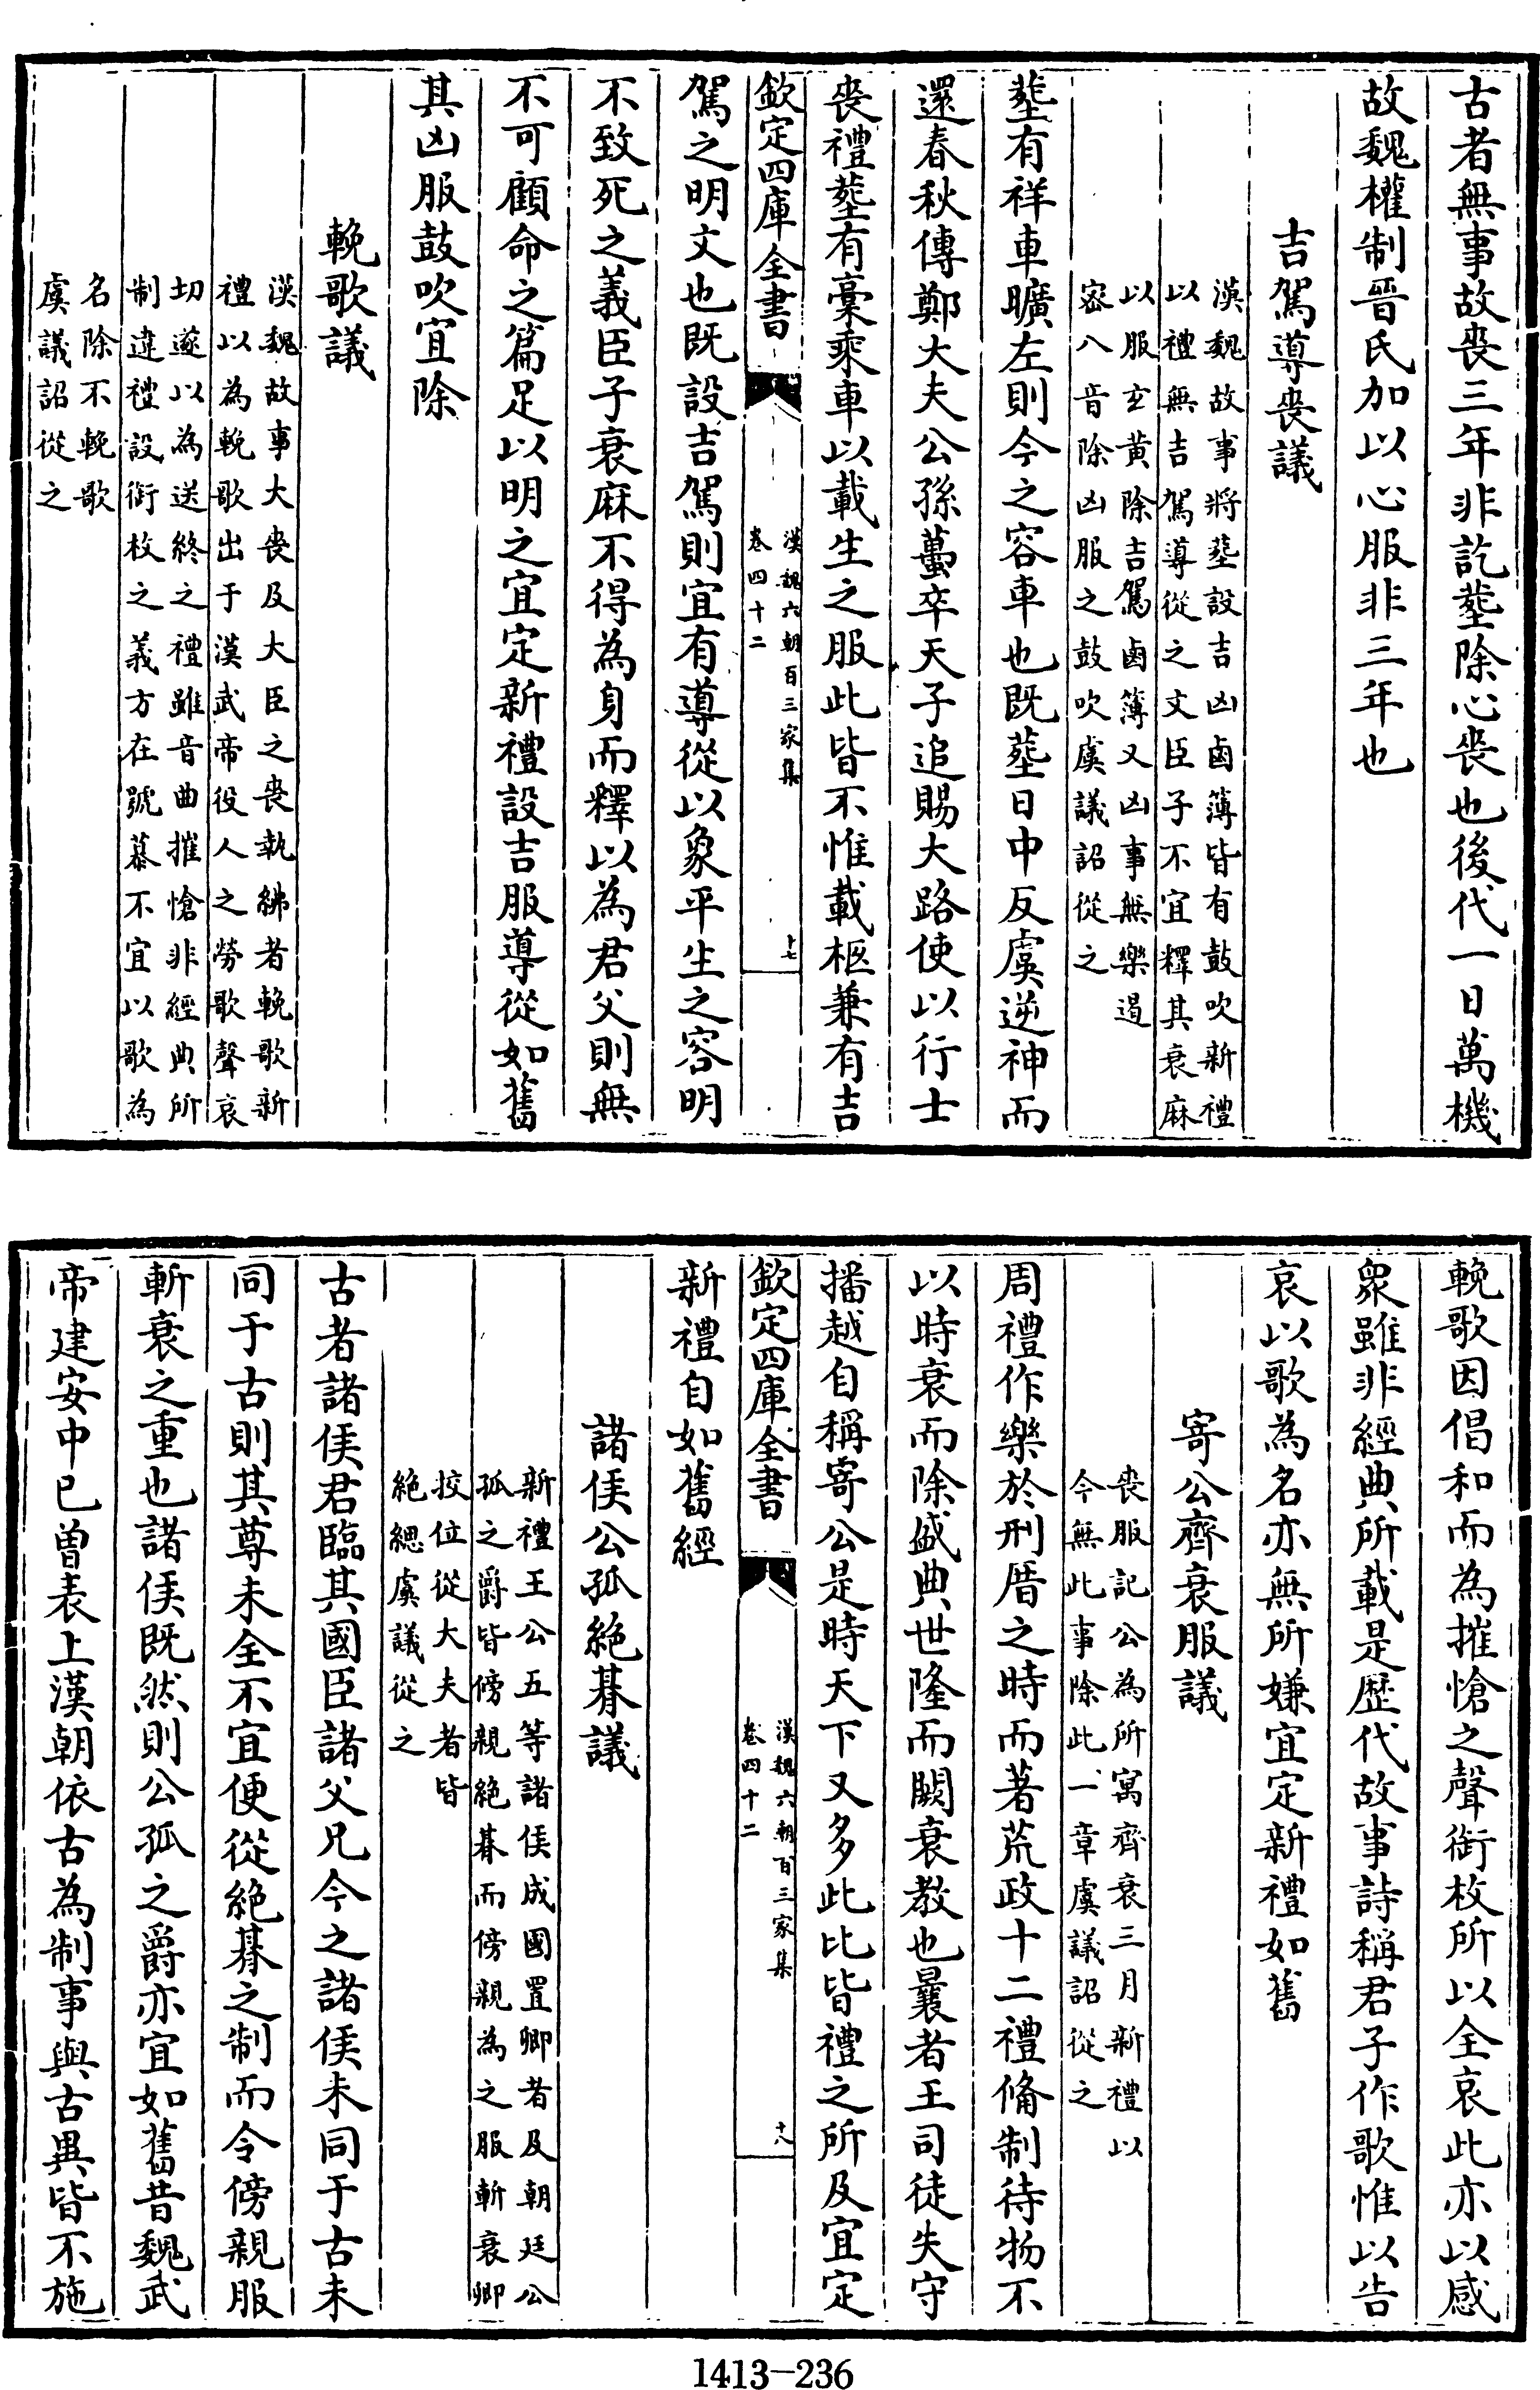 古者無事故喪三年非訖塟除心喪也後代一日萬機
故魏權制晉氏加以心服非三年也
吉駕導喪議
漢魏故事將塟設吉凶鹵簿皆有鼓吹新禮
以禮無吉駕導從之文臣子不宜釋其衰麻
以服玄黃除吉駕鹵簿又凶事無樂遏
宻八音除凶服之鼓吹虞議詔從之
塟有祥車曠左則今之容車也既塟日中反虞逆神而
還春秋傳鄭大夫公孫蠆卒天子追賜大路使以行士
喪禮塟有稾乘車以載生之服此皆不惟載柩兼有吉
欽定四庫全書
漢魏六朝百三家集
卷四十二
十七
駕之明文也既設吉駕則宜有導從以象平生之容明
不致死之義臣子衰麻不得為身而釋以為君父則無
不可顧命之篇足以明之宜定新禮設吉服導從如舊
其凶服鼓吹宜除
輓歌議
漢魏故事大喪及大臣之喪執紼者輓歌新
禮以為輓歌出于漢武帝役人之勞歌聲哀
切遂以為送終之禮雖音曲摧愴非經典所
制違禮設銜枚之義方在號慕不宜以歌為
名除不輓歌
虞議詔從之
輓歌因倡和而為摧愴之聲銜枚所以全哀此亦以感
衆雖非經典所載是歷代故事詩稱君子作歌惟以告
哀以歌為名亦無所嫌宜定新禮如舊
寄公齊衰服議
喪服記公為所寓齊衰三月新禮以
今無此事除此一章虞議詔從之
周禮作樂於刑厝之時而著荒政十二禮備制待物不
以時衰而除盛典世隆而闕衰教也曩者王司徒失守
播越自稱寄公是時天下又多此比皆禮之所及宜定
欽定四庫全書
漢魏六朝百三家集
卷四十二
十八
新禮自如舊經
諸侯公孤絶朞議
新禮王公五等諸侯成國置卿者及朝廷公
孤之爵皆傍親絶朞而傍親為之服斬衰卿
挍位從大夫者皆
絶緦虞議從之
古者諸侯君臨其國臣諸父兄今之諸侯未同于古未
同于古則其尊未全不宜便從絶朞之制而令傍親服
斬衰之重也諸侯既然則公孤之爵亦宜如舊昔魏武
帝建安中已曾表上漢朝依古為制事與古異皆不施
1413-236